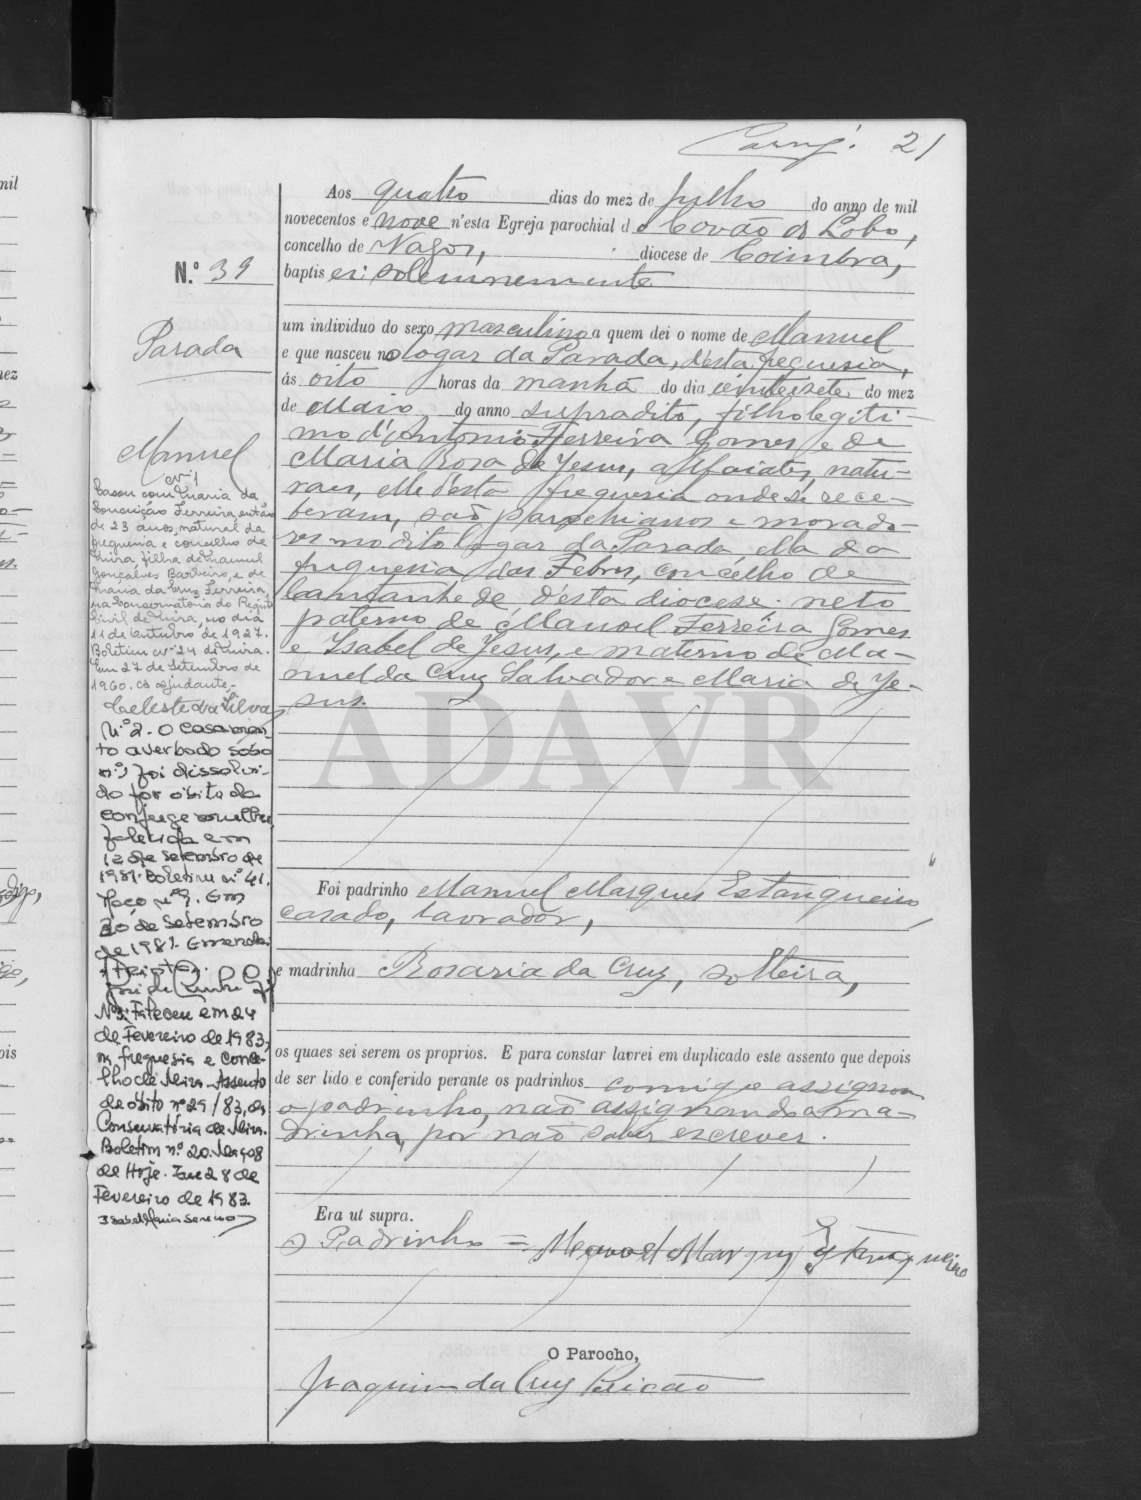 21
Aos quatro dias do mez de Julho do anno de mil
novecentos e nove n'esta Egreja parochial d e Covão do Lobo,
concelho de Vagos, diocese de Coimbra,
N.º 39
baptis ei solemnemente
um individuo do sexo masculino a quem dei o nome de Manuel
Parada
e que nasceu no logar da Parada, d'esta freguesia,
ás oito horas da manhã do dia vinte e sete do mez
de Maio do anno supradito, filho legiti-
mo d'Antonio Ferreira Gomes e de
Maria Rosa de Jesus, alfaiates, natu-
raes, elle d'esta freguesia onde se rece-
beram, são parochianos e morado-
res no dito logar da Parada, ella da
freguesia das Febres, concelho de
Cantanhede, d'esta diocese. neto
paterno de Manoel Ferreira Gomes
e Isabel de Jesus, e materno de Ma-
nuel da Cruz Salvador e Maria de Je-
sus.
Manuel
Nº 1
Casou com Maria da
Conceição Ferreira, então
de 23 anos, natural da
freguesia e concelho de
Mira, filha de Manuel
Gonçalves Barbeiro, e de
Maria da Cruz Ferreira,
na Conservatória do Registo
Civil de Mira, no dia
11 de Outubro de 1927.
Boletim nº 24 de Mira.
Em 27 de Setembro de
1960. O ajudante-
Celeste da Silva
N.º 2. O casamen-
to averbado sob o
n.º 1 foi dissolvi-
do por óbito da
conjuge mulher
falecida em
12 de Setembro de
1981. Boletim nº 41.
Maço nº 9. Em
30 de Setembro
de 1981.
Nº 3: Faleceu em 24
de Fevereiro de 1983,
na freguesia e Conce-
lho de Mira. Assento
de óbito nº 29/83, da
Conservatória de Mira.
Boletim n.º 20.
de Hoje. Em 28 de
Fevereiro de 1983.
Isabel Maria
ADAVR
Foi padrinho Manuel Marques Estanqueiro
casado, lavrador,
e madrinha Rosaria da Cruz, solteira,
os quaes sei serem os proprios. E para constar lavrei em duplicado este assento que depois
de ser lido e conferido perante os padrinhos comigo assignou
o padrinho, não assignando a ma-
drinha, por não saber escrever.
Era ut supra.
O Padrinho = Manoel Marques Estanqueiro
O Parocho,
Joaquim da Cruz